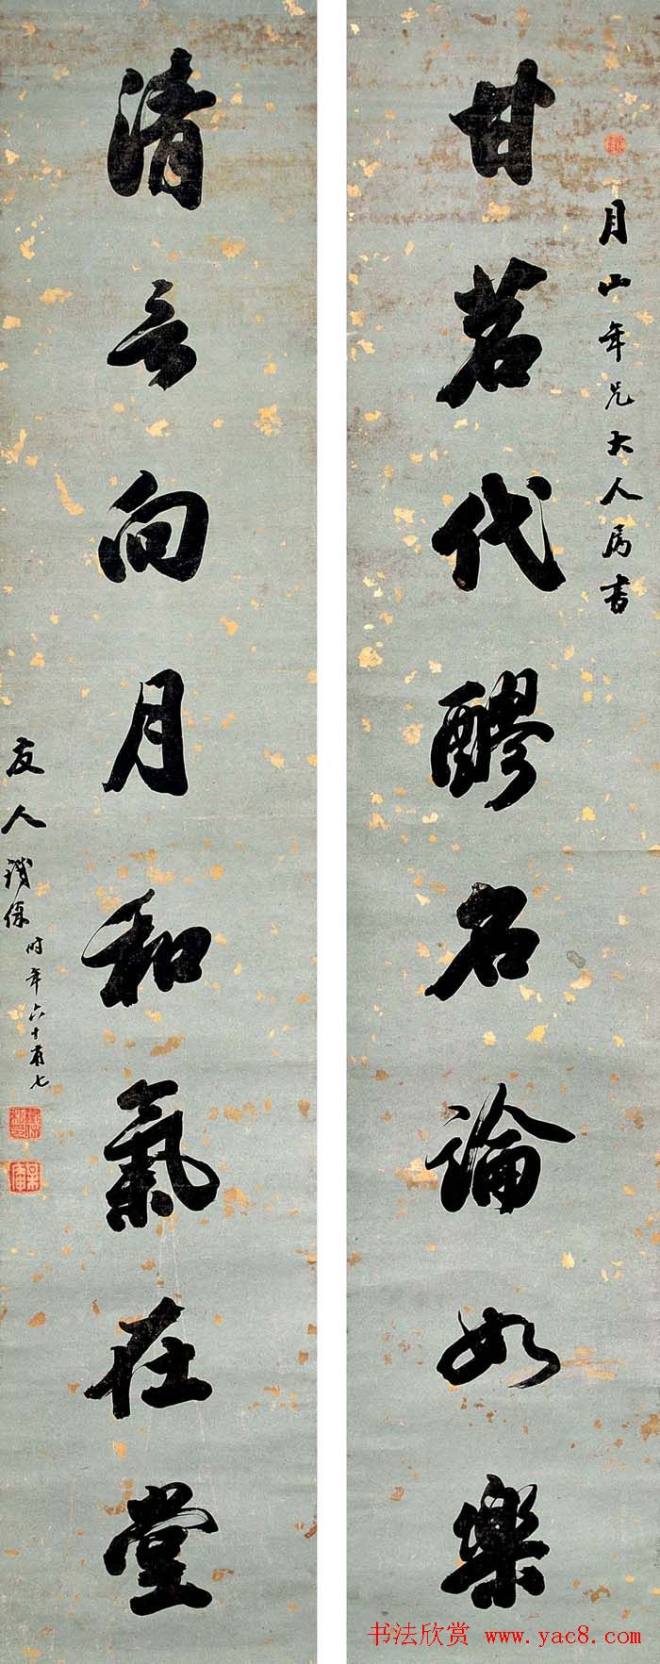 月山年兄大人属书
甘茗代醪名論如樂
清言向月和氣在堂
友人
時年六十有七
书法欣赏 www.yac8.com